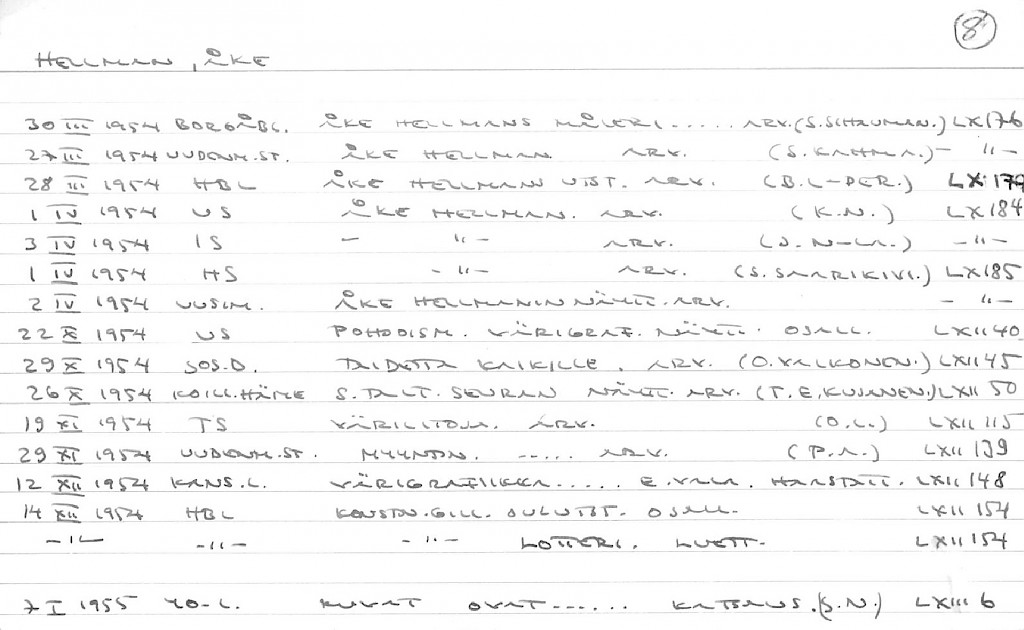 8
HELLMAN, ÅKE
30 III 1954 BORGÅBL. ÅKE HELLMANS MÅLERI..... ARV.(S.SCHAUMAN.) LXI 176
27 III 1954 UUDENM.ST. ÅKE HELLMAN ARV. (S.KAHMA.) - " -
28 III 1954 HBL ÅKE HELLMAN UTST. ARV. (B.L-DER.) LXI 179
1 IV 1954 US ÅKE HELLMAN. ARV. (K.N.) LXI 184
3 IV 1954 IS - " - ARV. - " -
1 IV 1954 HS - " - ARV. (S.SAARIKIVI.) LXI 185
2 IV 1954 UUSIM. ÅKE HELLMANIN NÄYTT. ARV. - " -
22 X 1954 US POHJOISM. VÄRIGRAF. NÄYTT. OSALL. LXII 40
29 X 1954 SOS.D. TAIDETTA KAIKILLE. ARV. (O.VALKONEN.) LXII 45
26 X 1954 KOILL.HÄME S.TAIT. SEURAN NÄYTT. ARV. (T.E.KUJANEN.) LXII 50
19 XI 1954 TS VÄRILITOJA. ARV. (O.L.) LXII 115
29 XI 1954 UUDENM.ST. MYYNTIN. ..... ARV. (P.A.) LXII 139
12 XII 1954 KANS.L. VÄRIGRAFIIKKA..... E.VALA. HAASTATT. LXII 148
14 XII 1954 HBL KONSTN.GILL. JULUTST. OSALL. LXII 154
- " - - " - - " - LOTTERI. LUETT. LXII 154
7 I 1955 YO-L. KUVAT OVAT...... KATSAUS.(S.N.) LXIII 6